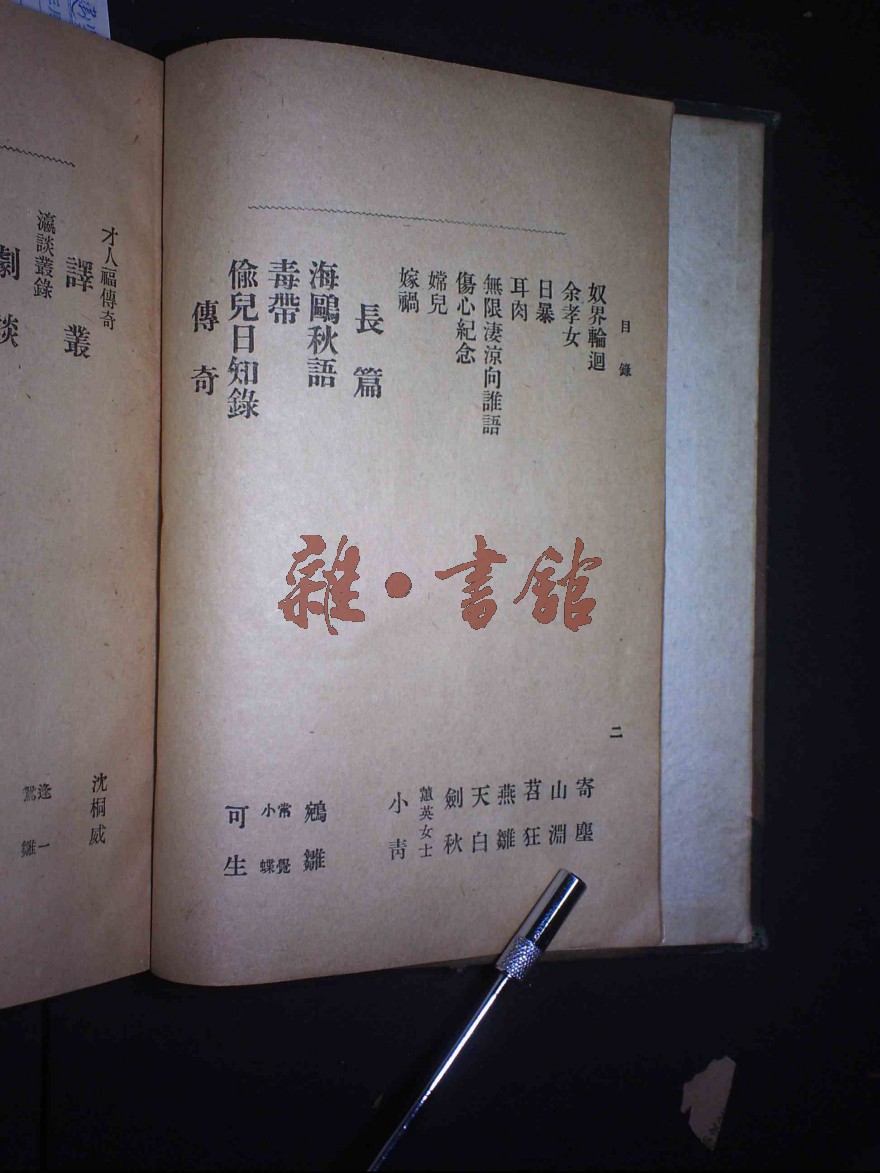 目錄
奴界輪迴 寄塵
余孝女 山淵
日暴 苕狂
耳肉 燕雛
無限淒涼向誰語 天白
傷心紀念 劍秋
嫦兒 蕙英女士
嫁禍 小青
長篇
海鷗秋語 鵷雛
毒帶 常覺 小蝶
偸兒日知錄 可生
傳奇
二
才人福傳奇 沈桐威
譯叢
瀛談叢錄 逢一 鵷雛
劇談
雜·書館